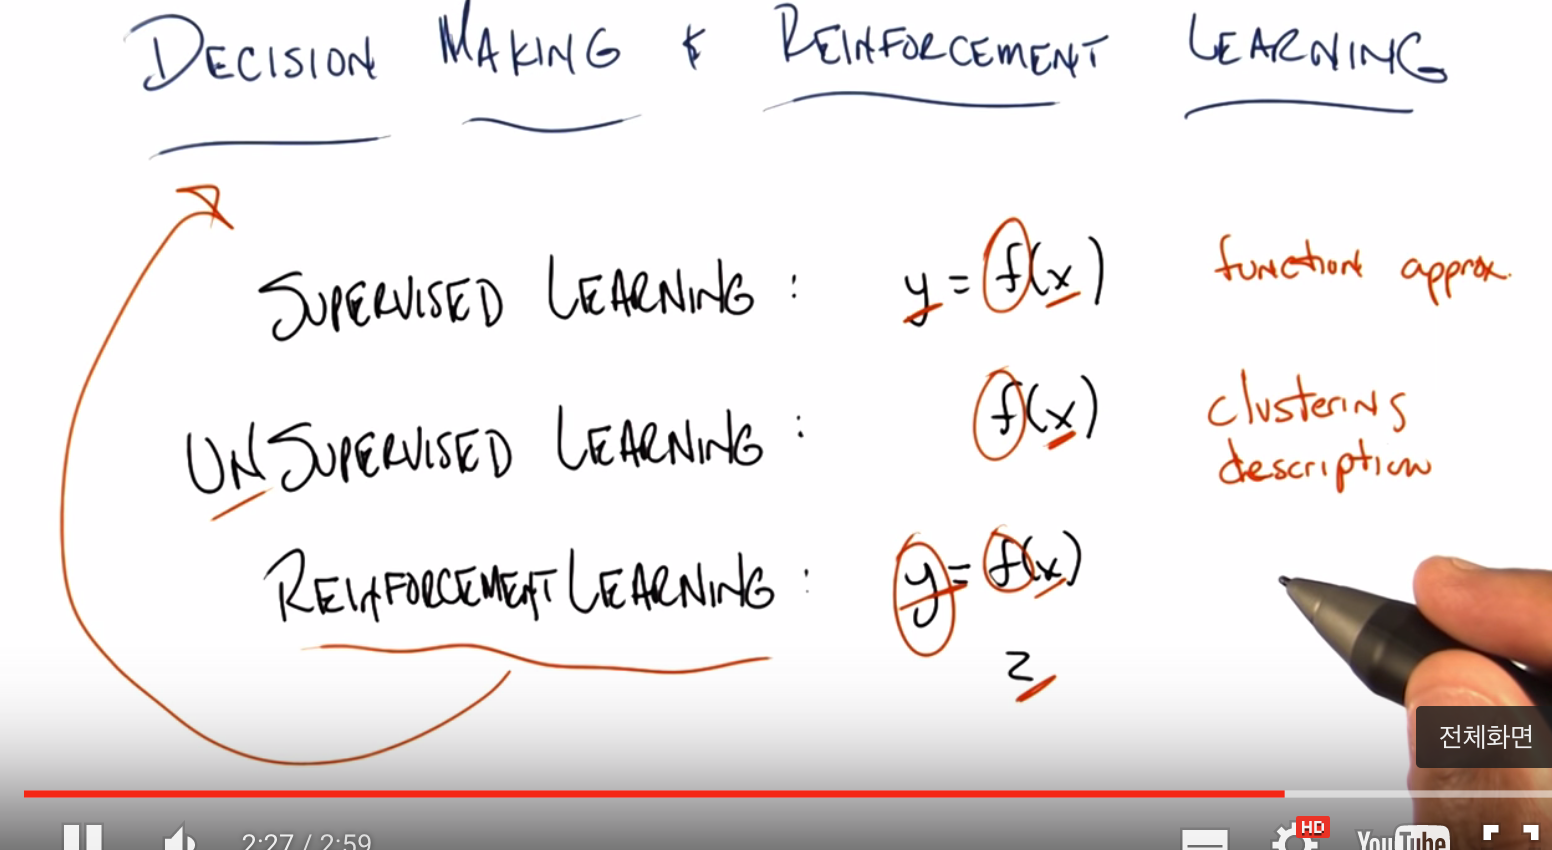 DECISION MAKING & REINFORCEMENT LEARNING
SUPERVISED LEARNING : y = f(x) function approx.
UNSUPERVISED LEARNING : f(x) clustering
description
REINFORCEMENT LEARNING : y = f(x)
z
전체화면
HD
2:27 / 2:59
YouTube